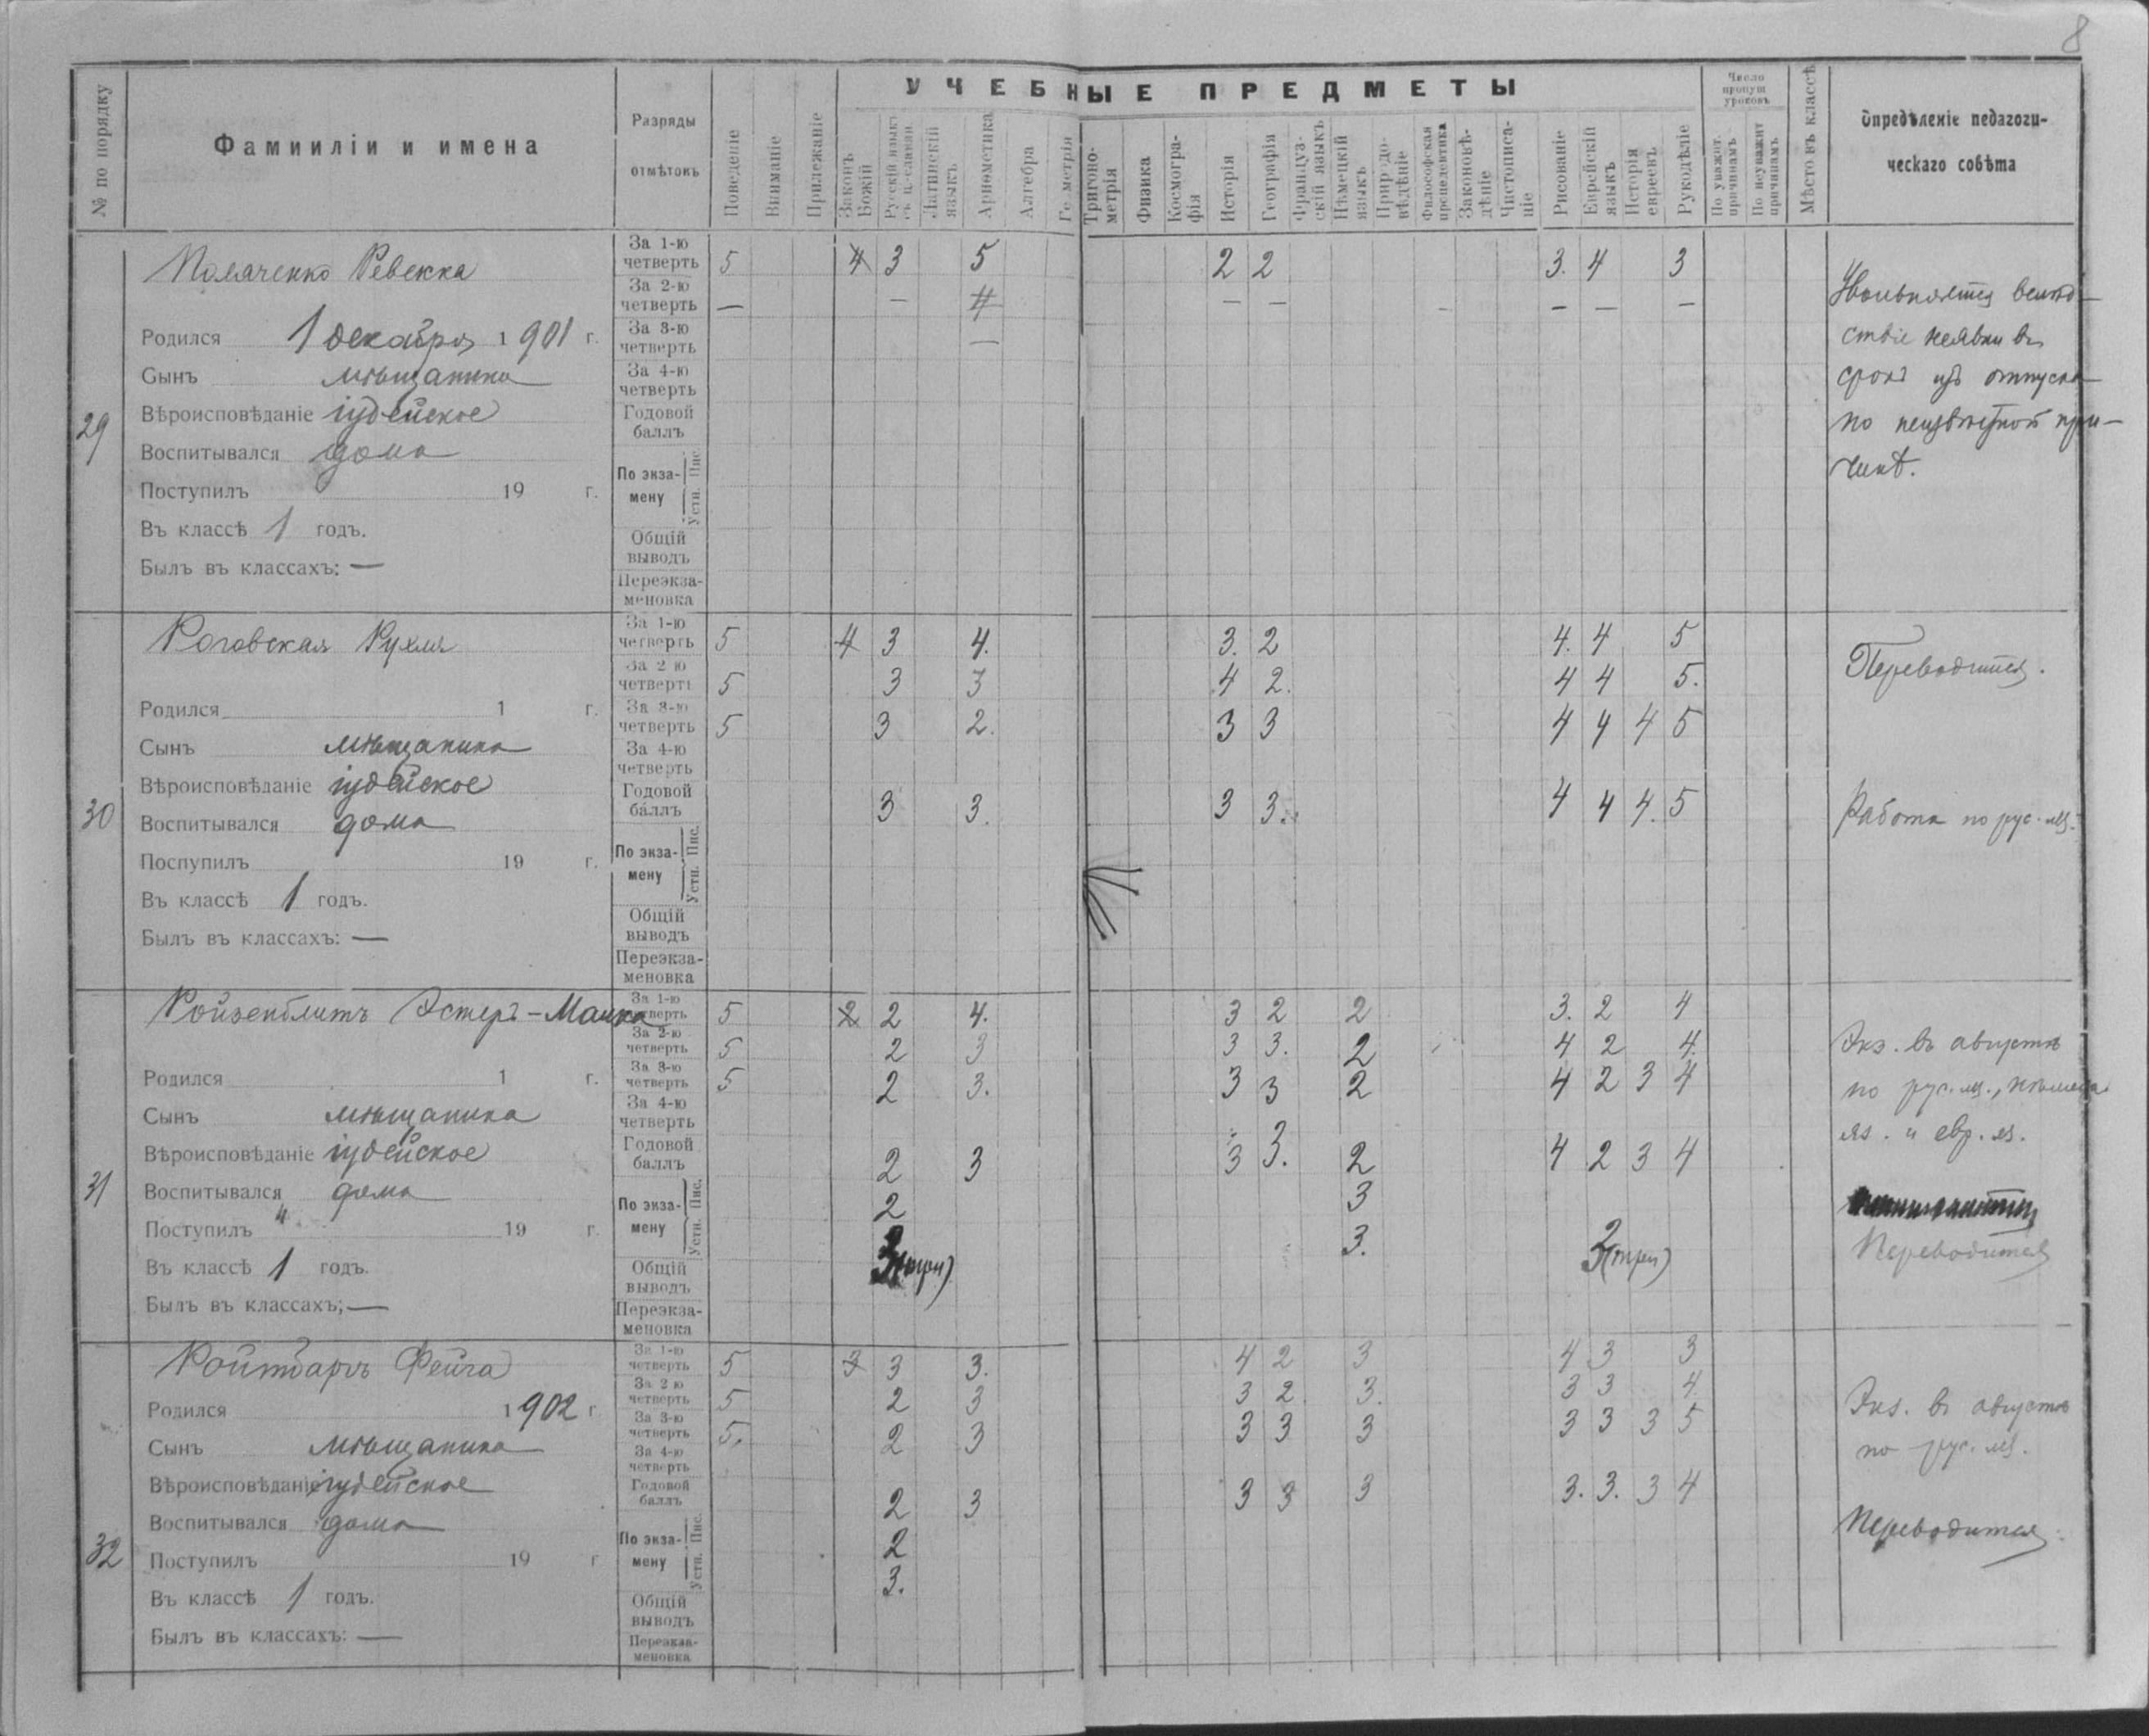 8
№ по порядку
Фамииліи и имена
Разряды отмѣтокъ
Поведеніе
Вниманіе
Прилежаніе
УЧЕБНЫЕ ПРЕДМЕТЫ
Законъ Божій
Русскій языкъ съ ц.-славян.
Латинскій языкъ
Арифметика
Алгебра
Геометрія
Тригоно-метрія
Физика
Космогра-фія
Исторія
Географія
Француз-скій языкъ
Нѣмецкій языкъ
Природо-вѣдѣніе
Философская пропедевтика
Законовѣ-дѣніе
Чистописа-ніе
Рисованіе
Еврейскій языкъ
Исторія евреевъ
Рукодѣліе
Число пропущ уроковъ
По уважит. причинамъ
По неуважит причинамъ
Мѣсто въ классѣ
Опредѣленіе педагоги-
ческаго совѣта
29
Поляченко Ревекка
Родился 1 декабря 1901 г.
Сынъ мѣщанина
Вѣроисповѣданіе іудейское
Воспитывался дома
Поступилъ 19 г.
Въ классѣ 1 годъ.
Былъ въ классахъ: —
За 1-ю четверть 5 4 3 5 2 2 3. 4 3
За 2-ю четверть — — 4 — — — — —
За 3-ю четверть —
За 4-ю четверть
Годовой баллъ
По экза-мену Пис. Устн.
Общій выводъ
Переэкза-меновка
Увольняется вслѣд-
ствіе неявки въ
срокъ изъ отпуска
по неизвѣстной при-
чинѣ.
30
Роговская Рухля
Родился 1 г.
Сынъ мѣщанина
Вѣроисповѣданіе іудейское
Воспитывался дома
Поспупилъ 19 г.
Въ классѣ 1 годъ.
Былъ въ классахъ: —
За 1-ю четверть 5 4 3 4. 3. 2 4. 4 5
За 2 ю четверть 5 3 3 4 2. 4 4 5.
За 3-ю четверть 5 3 2. 3 3 4 4 4 5
За 4-ю четверть
Годовой баллъ 3 3. 3 3. 4 4 4. 5
По экза-мену Пис. Устн.
Общій выводъ
Переэкза-меновка
Переводится.
Работа по рус. яз.
31
Ройзенблитъ Эстеръ-Малка
Родился 1 г.
Сынъ мѣщанина
Вѣроисповѣданіе іудейское
Воспитывался дома
Поступилъ 19 г.
Въ классѣ 1 годъ.
Былъ въ классахъ; —
За 1-ю четверть 5 2 2 4. 3 2 2 3. 2 4
За 2-ю четверть 5 2 3 3 3. 2 4 2 4.
За 3-ю четверть 5 2 3. 3 3 2 4 2 3 4
За 4-ю четверть
Годовой баллъ 2 3 3 3. 2 4 2 3 4
По экза-мену Пис. 2 3
Устн. 3(три) 3. 2 3(три)
Общій выводъ
Переэкза-меновка
Экз. въ августѣ
по рус. яз., нѣмецк.
яз. и евр. яз.
Переводится
32
Ройтбаръ Фейга
Родился 1902 г
Сынъ мѣщанина
Вѣроисповѣданіе іудейское
Воспитывался дома
Поступилъ 19 г
Въ классѣ 1 годъ.
Былъ въ классахъ: —
За 1-ю четверть 5 3 3 3. 4 2 3 4 3 3
За 2 ю четверть 5 2 3 3 2. 3. 3 3 4
За 3-ю четверть 5. 2 3 3 3 3 3 3 3 5
За 4-ю четверть
Годовой баллъ 2 3 3 3 3 3. 3. 3 4
По экза-мену Пис. 2
Устн. 3.
Общій выводъ
Переэкза-меновка
Экз. въ августѣ
по рус. яз.
Переводится.